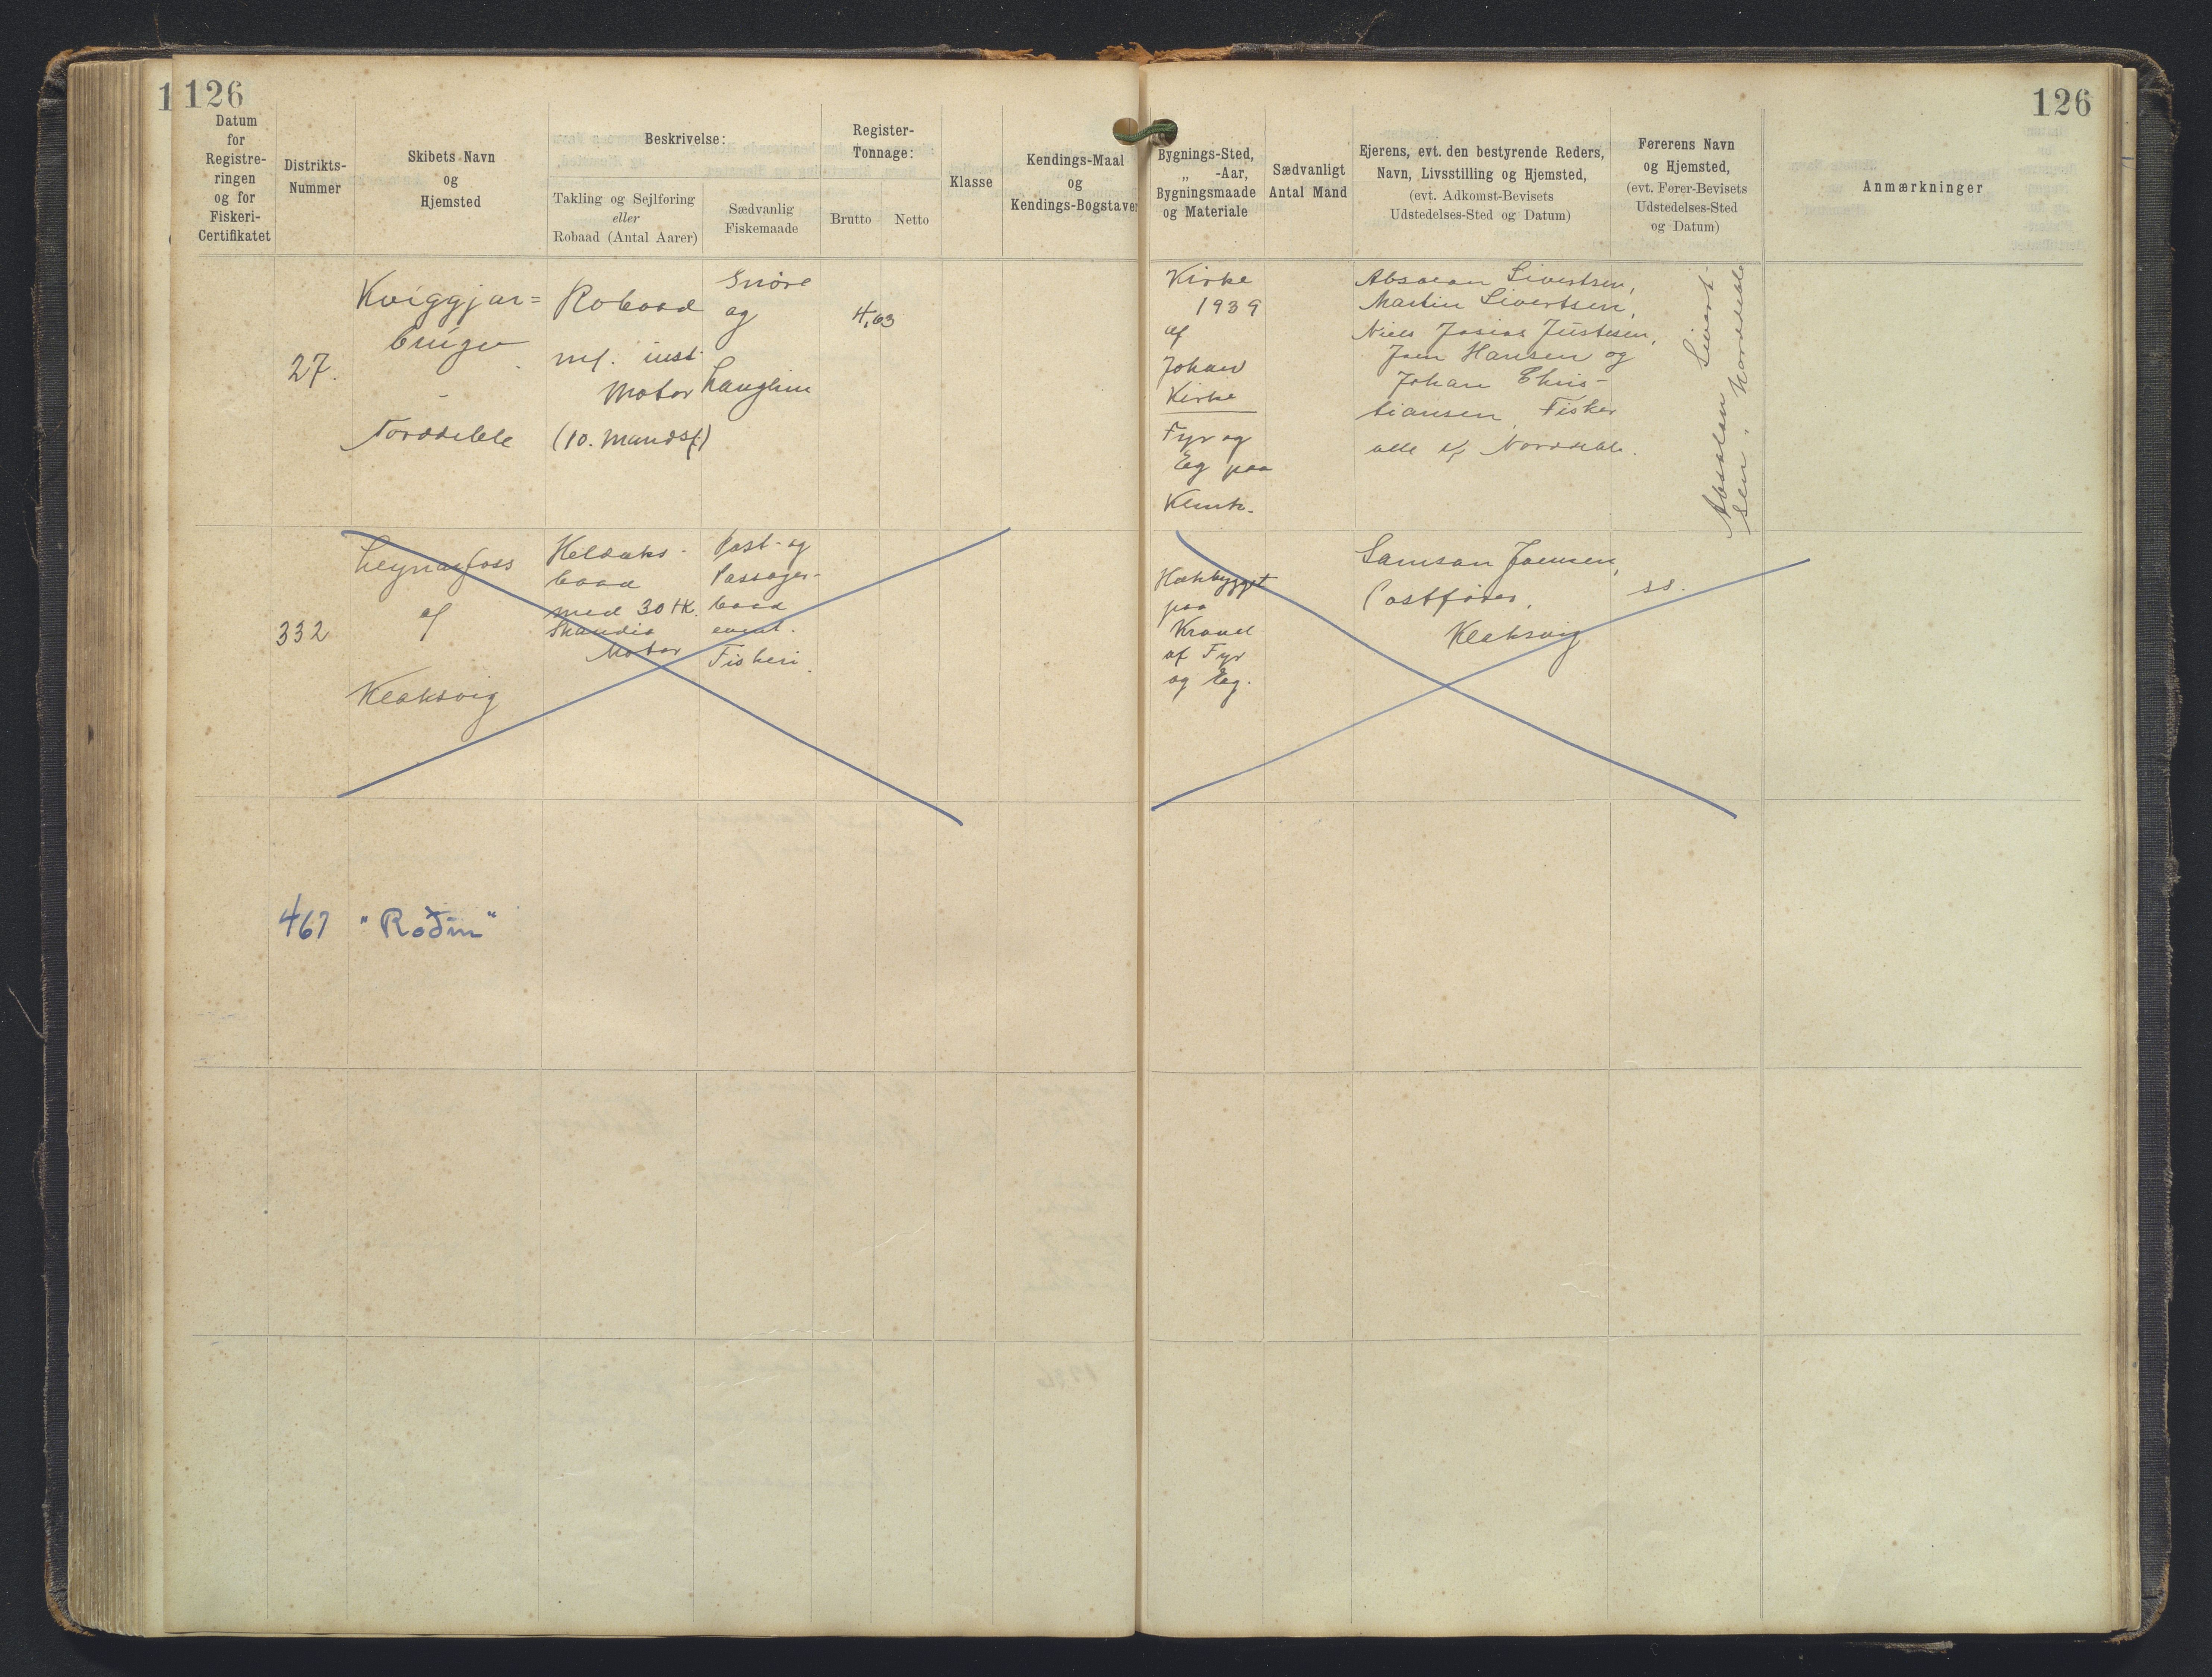 1
126
126
Datum
for
Registre-
ringen
og for
Fiskeri-
Certifikatet
Distrikts-
Nummer
Skibets Navn
og
Hjemsted
Beskrivelse:
Takling og Sejlføring
eller
Robaad (Antal Aarer)
Sædvanlig
Fiskemaade
Register-
Tonnage:
Brutto
Netto
Klasse
Kendings-Maal
og
Kendings-Bogstaver
Bygnings-Sted,
„ -Aar,
Bygningsmaade
og Materiale
Sædvanligt
Antal Mand
Ejerens, evt. den bestyrende Reders,
Navn, Livsstilling og Hjemsted,
(evt. Adkomst-Bevisets
Udstedelses-Sted og Datum)
Førerens Navn
og Hjemsted,
(evt. Fører-Bevisets
Udstedelses-Sted
og Datum)
Anmærkninger
27.
Kviggjar=
Norddeble
Robaad
m/. inst.
Motor
(10. Mandsf.)
Snøre
og
Langline
4,63
Kirke
1939
af
Johan
Kirke
Fyr og
Eg paa
Klink.
Absalon Sivertsen,
Martin Sivertsen,
Niels Josias Justesen,
Joen Hansen og
Johan Chris-
tiansen, Fisker
alle af Norddeble.
Absalon Sivert-
sen, Norddeble
332
Leynarfoss
af
Klaksvig
Heldæks-
baad
med 30 HK.
Skandia
Motor
Post- og
Passager-
baad
event.
Fiskeri.
Hækbygget
paa
Kravel
af Fyr
og Eg.
Samson Joensen,
Postfører,
Klaksvig
ss.
467
"Roðin"